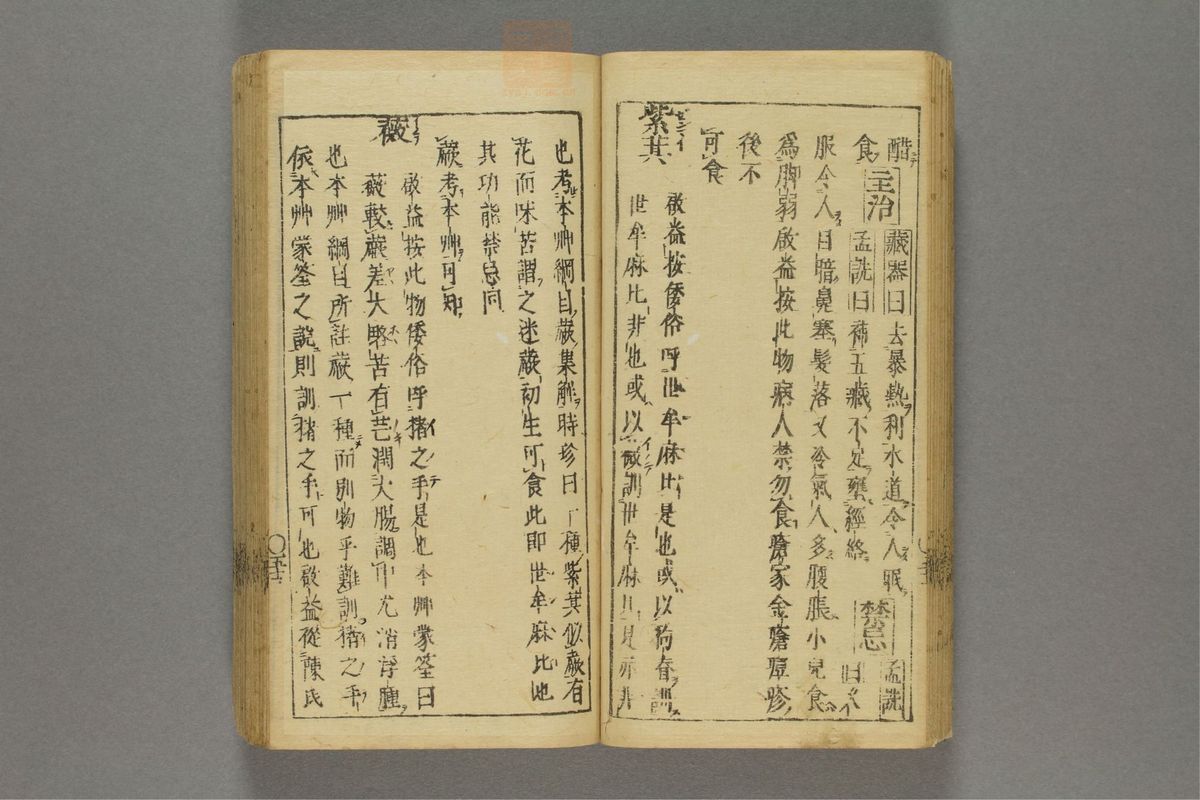 醋食主治藏器曰去暴熱利水道令人眠
孟詵曰補五臟不足壅經絡禁忌孟詵曰
服令人目暗鼻塞髮落又冷氣人多腹脹小兒食
爲脚弱啟益按此物病人禁勿食瘡家金瘡痘疹
後不
可食
紫萁
啟益按倭俗呼世牟麻比是也或以狗脊訓
世牟麻比非也或以薇訓世牟麻比是亦非
也考本艸綱目蕨集解時珍曰一種紫萁似蕨有
花而味苦謂之迷蕨初生可食此即世牟麻比也
其功能禁忌同
蕨考本艸可知
薇
啟益按此物倭俗呼猪之手是也本艸蒙筌曰
薇較蕨差大略苦有芒潤大腸調中尤消浮腫
也本艸綱目所註薇一種而別物乎難訓猪之手
依本艸蒙筌之說則訓猪之手可也啟益從陳氏